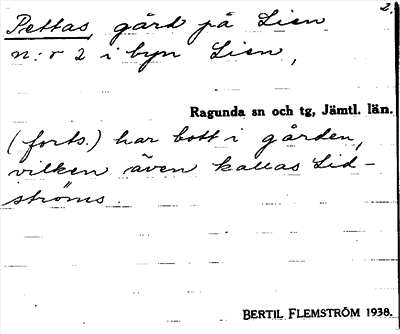 2.
Pettas, gård på Lien
n:r 2 i byn Lien,
Ragunda sn och tg, Jämtl. län.
(forts.) har bott i gården,
vilken även kallas Lid-
ströms.
BERTIL FLEMSTRÖM 1938.